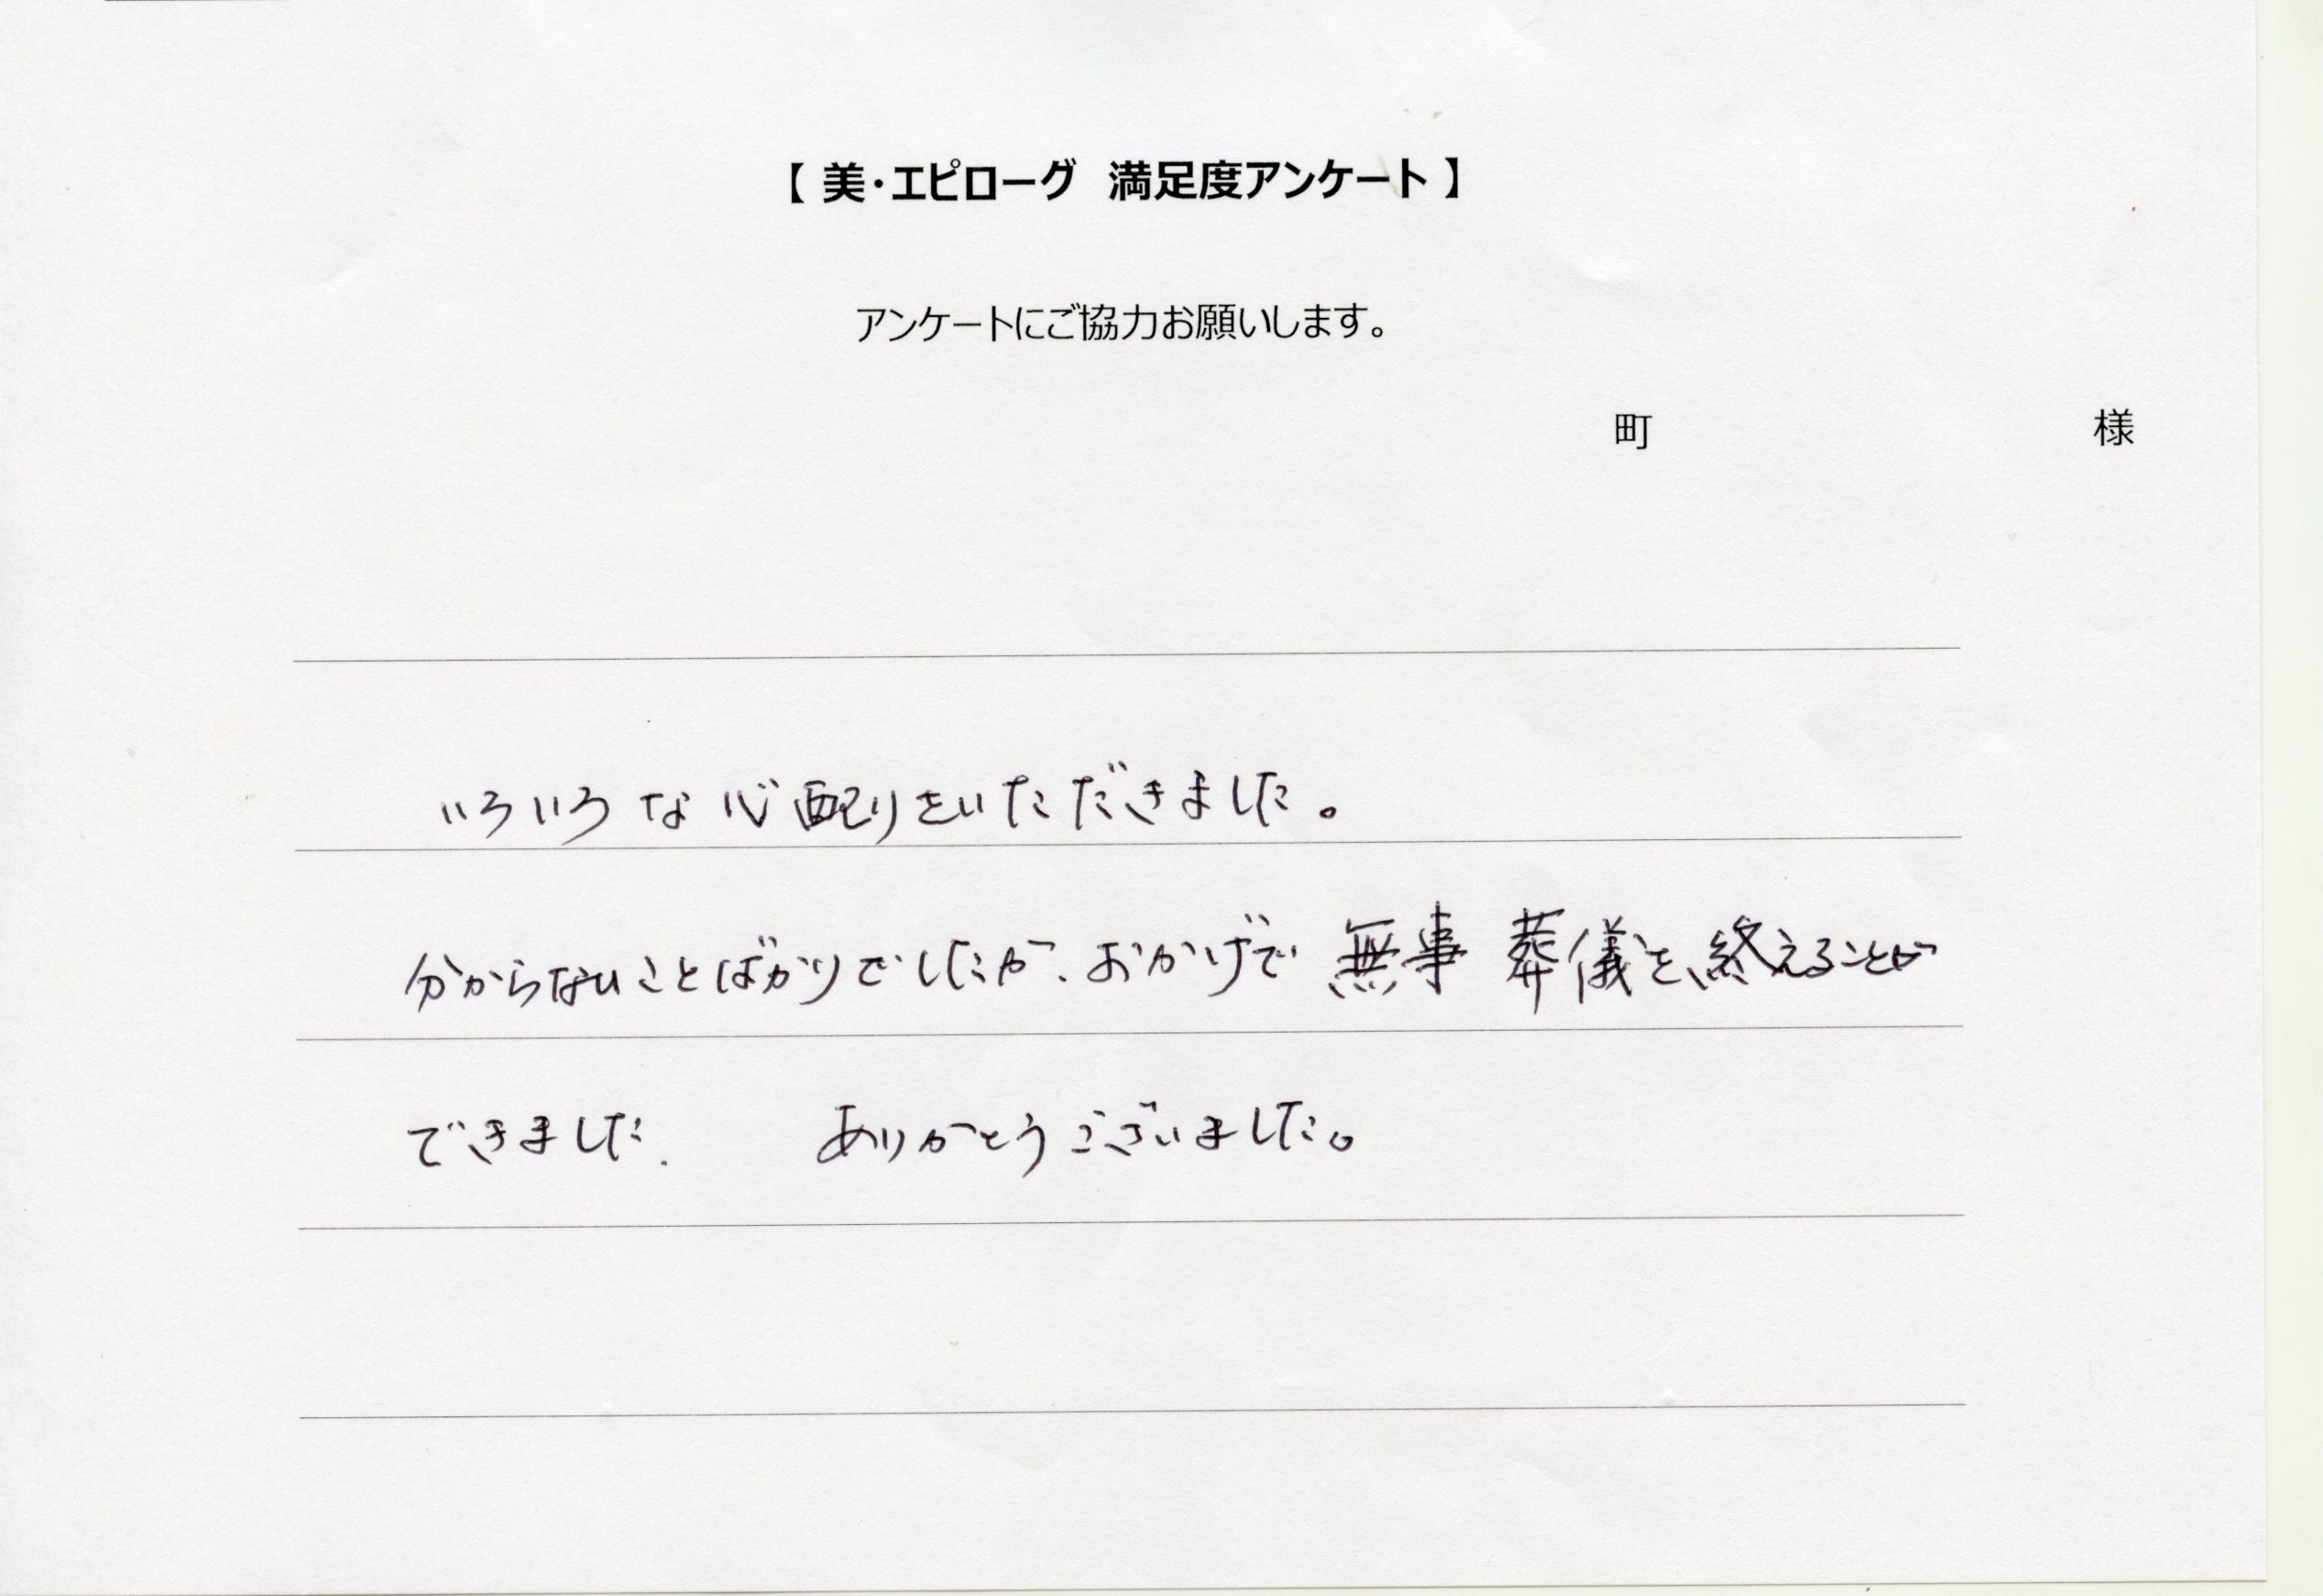 【 美・エピローグ　満足度アンケート 】
アンケートにご協力お願いします。
町　様
いろいろな心配りをいただきました。
分からないことばかりでしたが、おかげで無事 葬儀を終えることが
できました.　ありがとうございました。